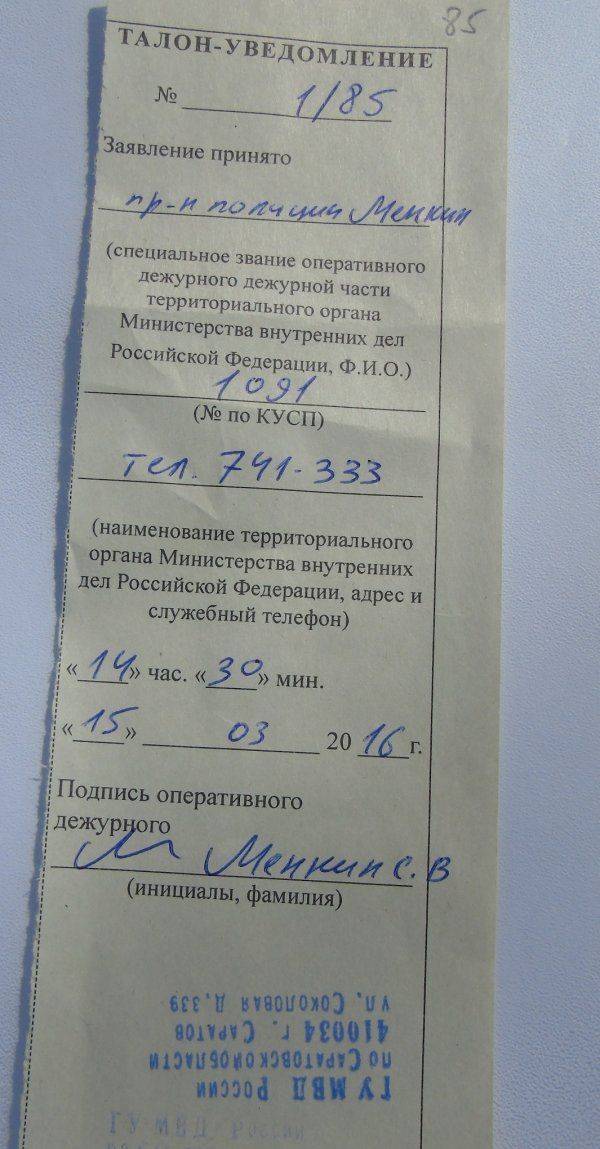 85
ТАЛОН-УВЕДОМЛЕНИЕ
№ 1/85
Заявление принято
пр-к полиции Менкин
(специальное звание оперативного
дежурного дежурной части
территориального органа
Министерства внутренних дел
Российской Федерации, Ф.И.О.)
1091
(№ по КУСП)
тел. 741-333
(наименование территориального
органа Министерства внутренних
дел Российской Федерации, адрес и
служебный телефон)
«14» час. «30» мин.
«15» 03 2016 г.
Подпись оперативного
дежурного
Менкин С.В
(инициалы, фамилия)
ГУ МВД России
по Саратовской области
410034 г. Саратов
ул. Соколовая д.339
ГУ МВД России